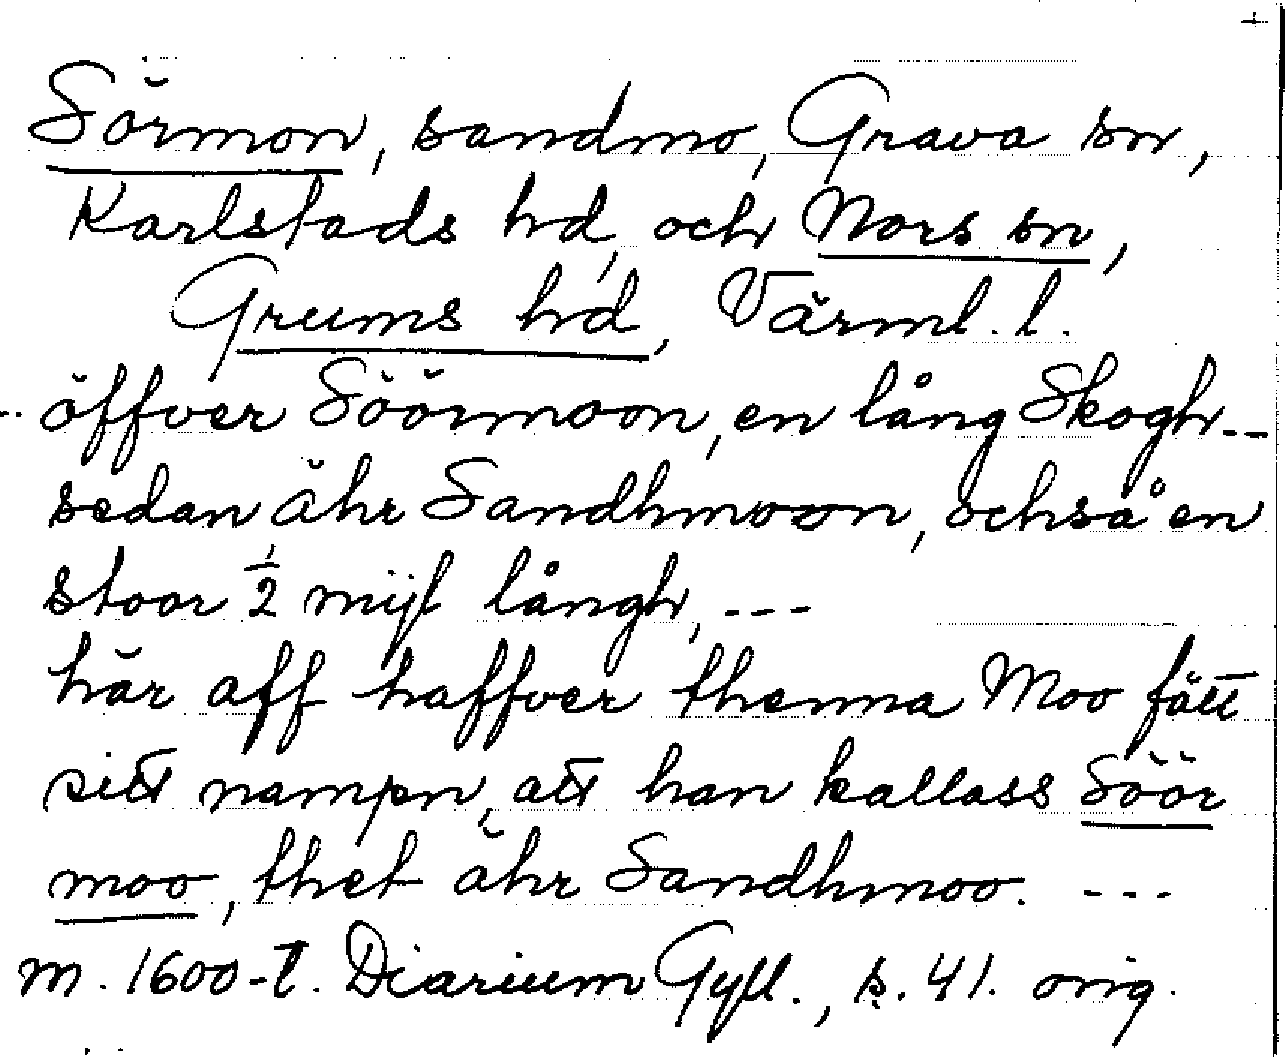 +
Sörmon, sandmo, Grava sn,
Karlstads hd, och Nors sn,
Grums hd, Värml. l.
-- öffver Söörmoon, en lång Skogh --
sedan ähr Sandhmoon, ochså en
stoor 1/2 mijl långh, ---
här aff haffver thenna Moo fått
sitt nampn, att han kallass Söör
moo, thet ähr Sandhmoo. ---
m. 1600-t. Diarium Gyll., s. 41. orig.